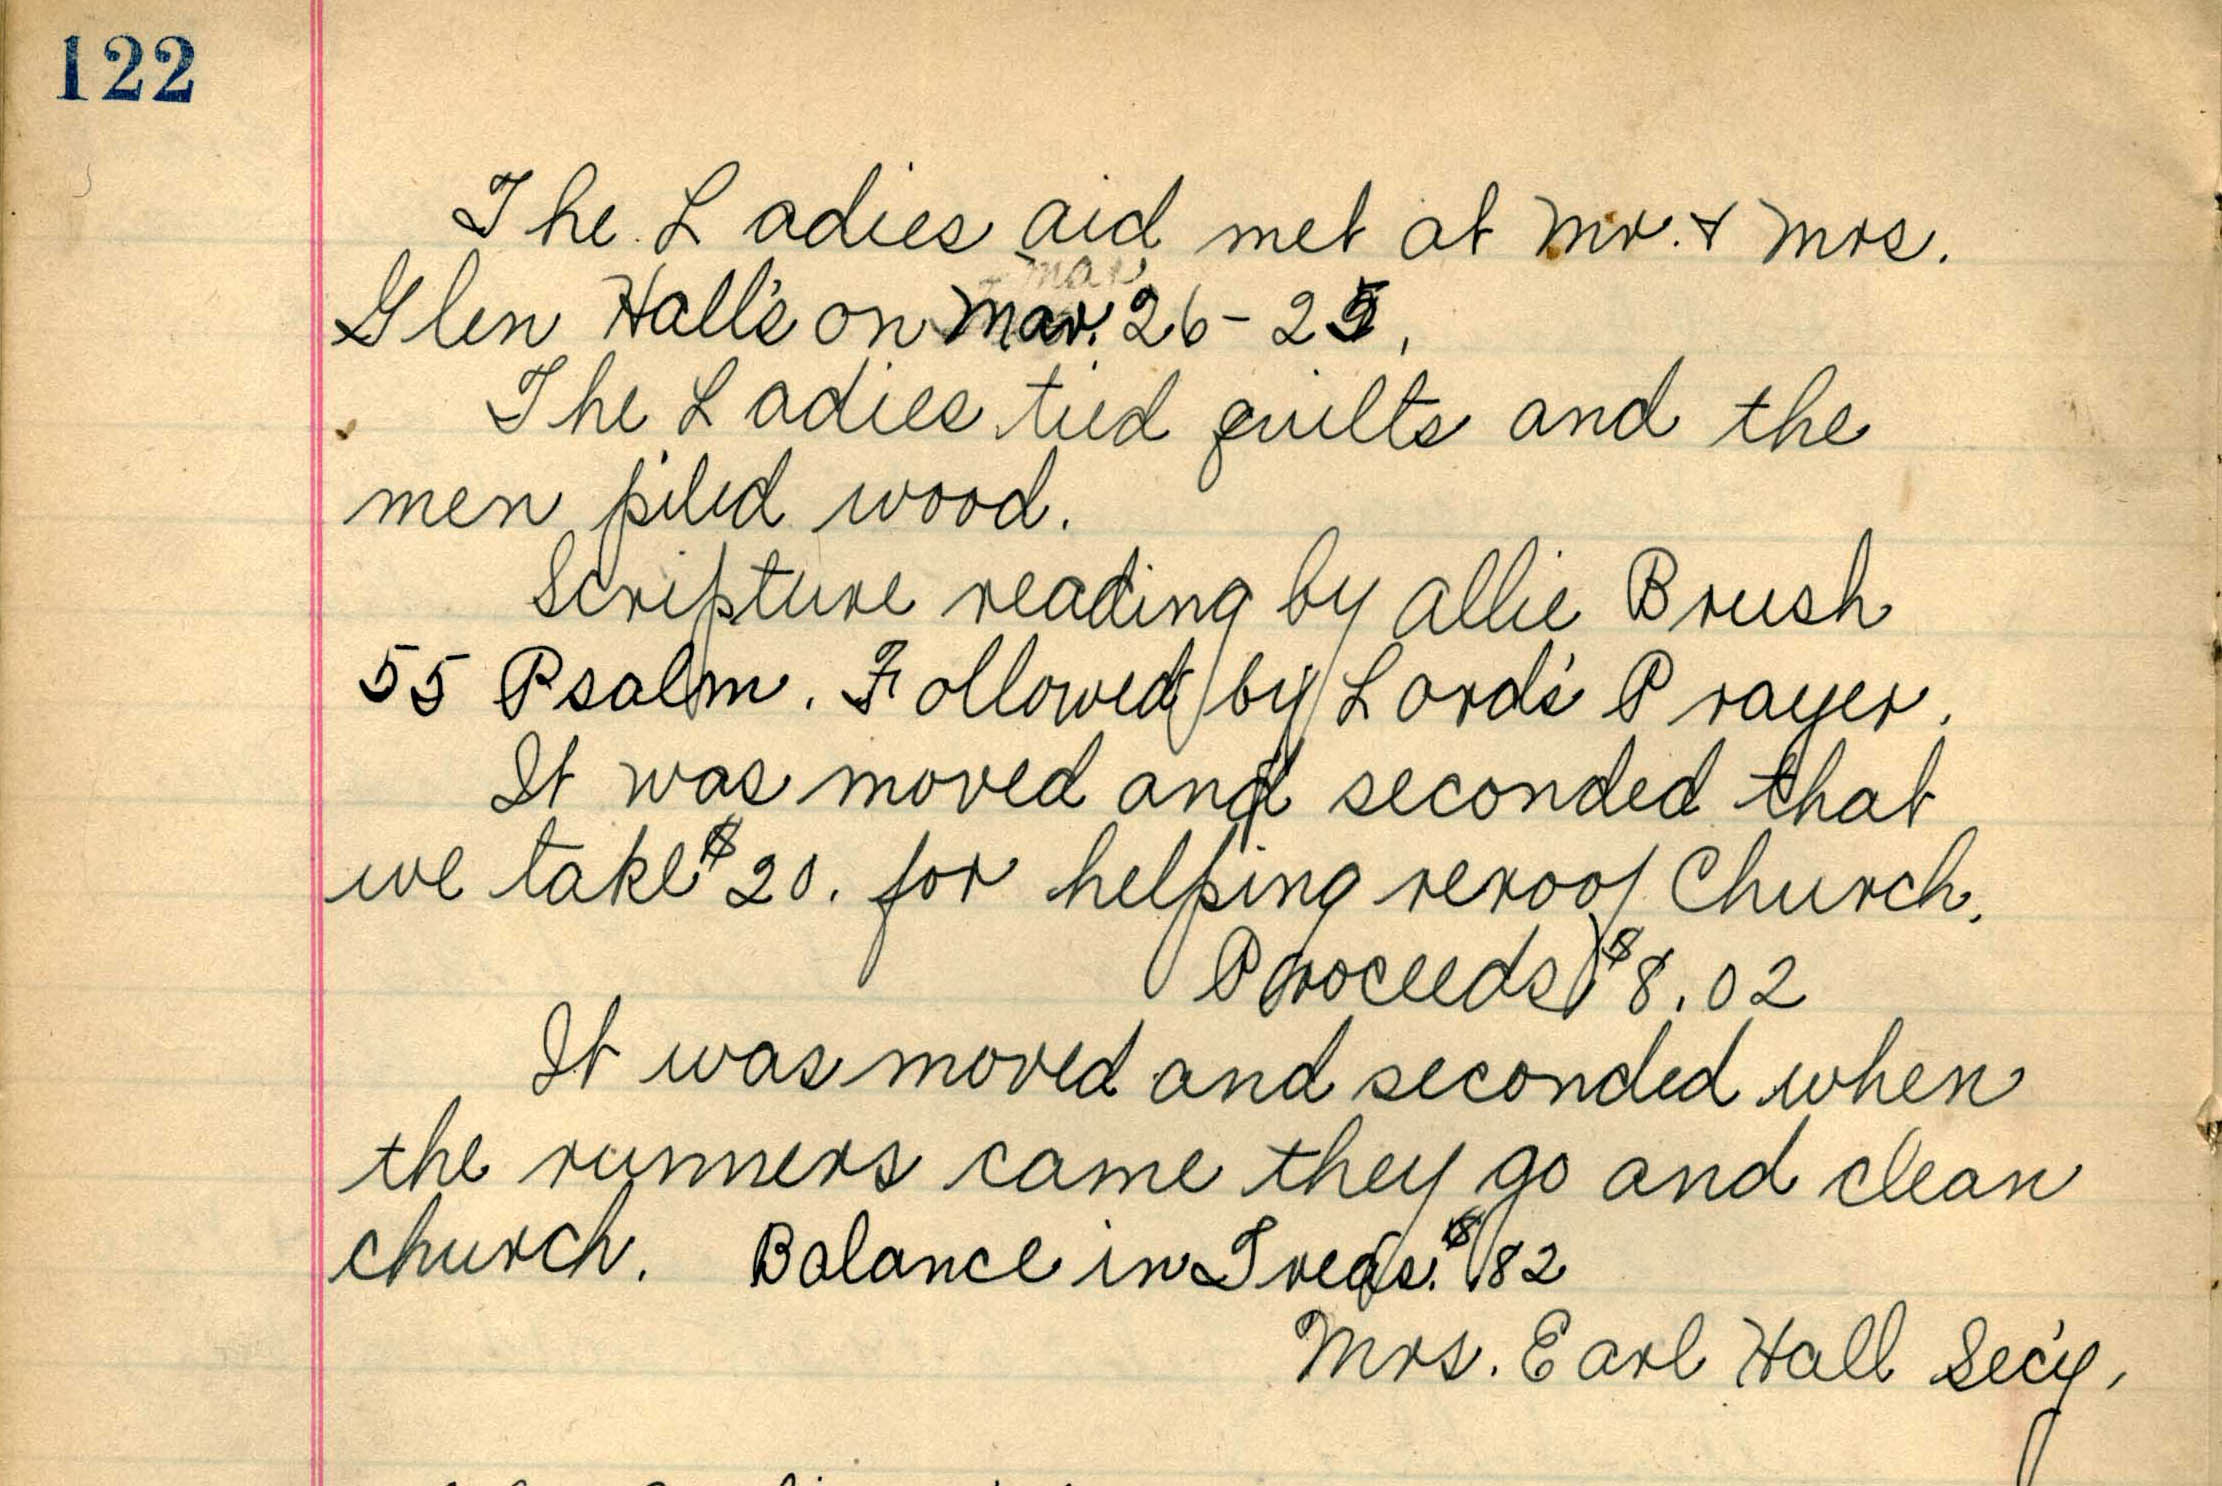 122
The Ladies aid met at Mr. & Mrs.
Mar.
Glen Hall's on Mar. 26-25,
The Ladies tied quilts and the
men piled wood.
Scripture reading by Allie Brush
55 Psalm. Followed by Lord's Prayer.
It was moved and seconded that
we take $20. for helping reroof Church.
Proceeds $8.02
It was moved and seconded when
the runners came they go and clean
church. Balance in Treas. $.82
Mrs. Earl Hall Sec'y,